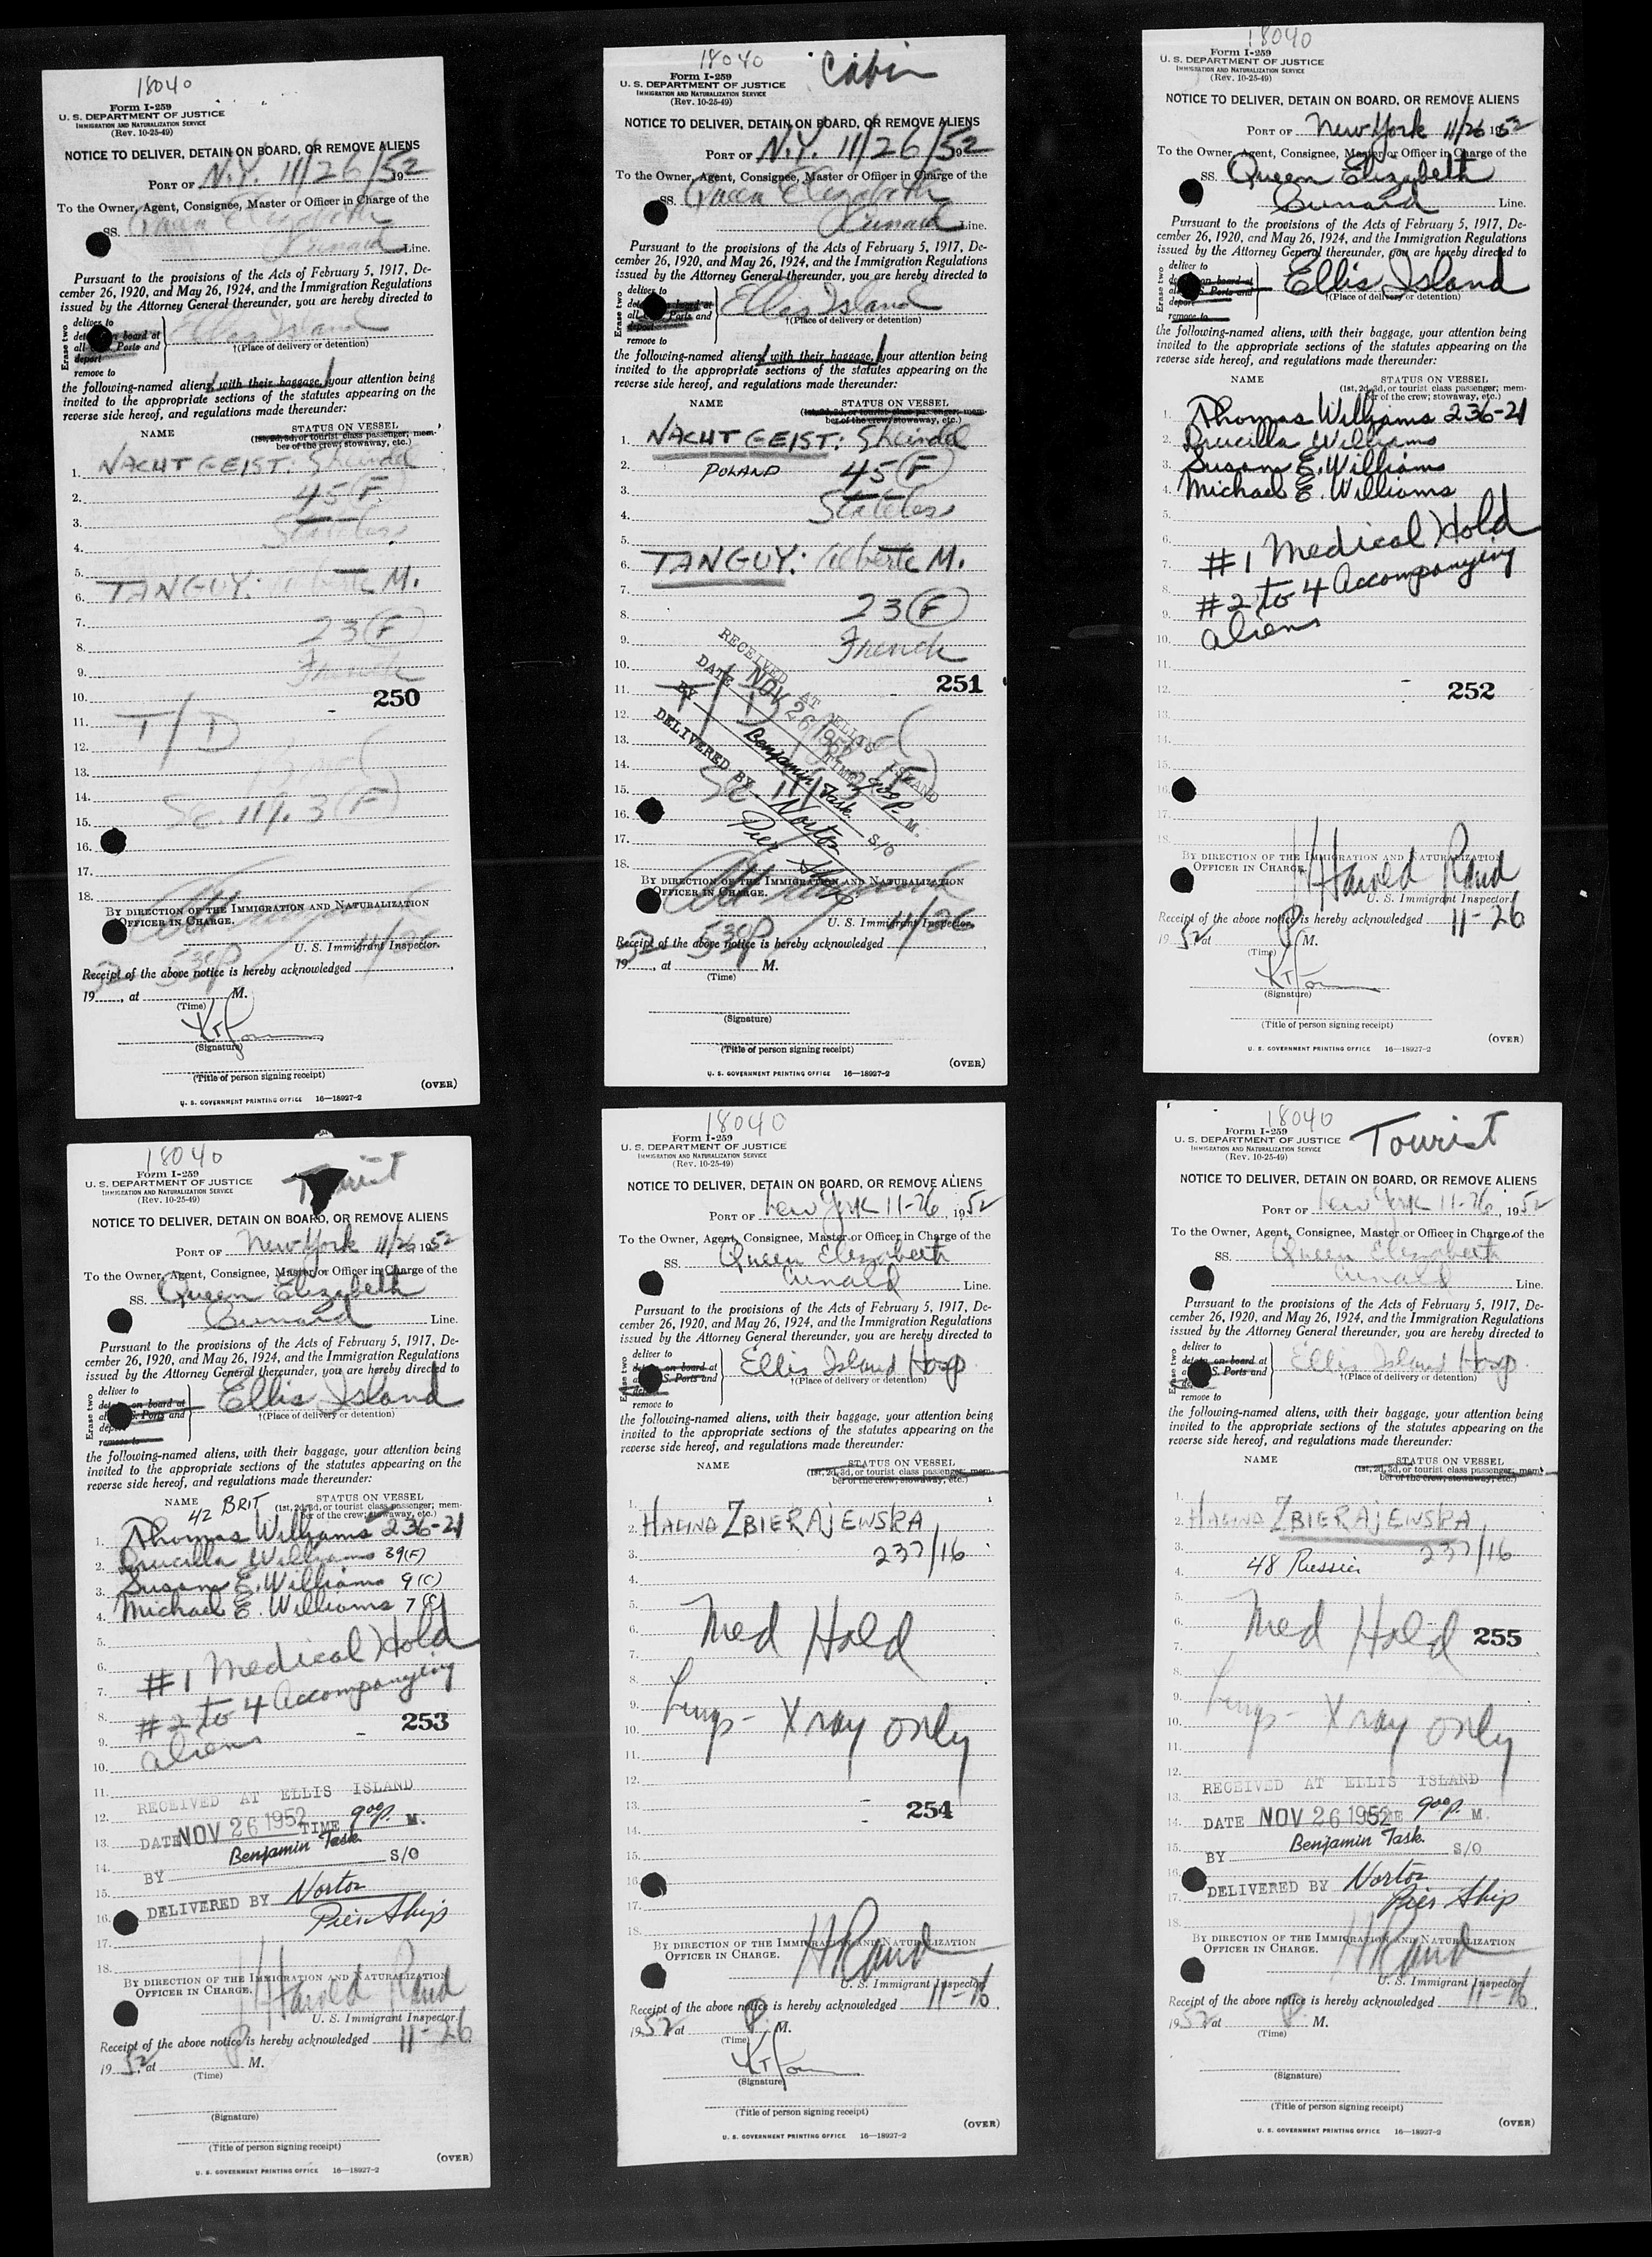 18040
Form I-259
U. S. DEPARTMENT OF JUSTICE
IMMIGRATION AND NATURALIZATION SERVICE
(Rev. 10-25-49)
NOTICE TO DELIVER, DETAIN ON BOARD, OR REMOVE ALIENS
PORT OF N.Y. 11/26/52
To the Owner, Agent, Consignee, Master or Officer in Charge of the
SS. Queen Elizabeth
Cunard Line.
Pursuant to the provisions of the Acts of February 5, 1917, De-
cember 26, 1920, and May 26, 1924, and the Immigration Regulations
issued by the Attorney General thereunder, you are hereby directed to
Erase two
deliver to
board at
all Ports and
deport
remove to
Ellis Island
†(Place of delivery or detention)
the following-named aliens, with their baggage, your attention being
invited to the appropriate sections of the statutes appearing on the
reverse side hereof, and regulations made thereunder:
NAME STATUS ON VESSEL
(1st, 2d, 3d, or tourist class passenger; mem-
ber of the crew; stowaway, etc.)
1. NACHT GEIST: Sheindel
2. 45 (F)
3. Stateless
4.
5.
6. TANGUY: Alberte M.
7.
8. 23 (F)
9. French
10. 250
11. T/D
12.
13.
14.
15. Se. 111.3 (F)
16.
17.
18.
BY DIRECTION OF THE IMMIGRATION AND NATURALIZATION
OFFICER IN CHARGE.
U. S. Immigrant Inspector.
Receipt of the above notice is hereby acknowledged 11/26
19 52, at 530P M.
(Time)
(Signature)
(Title of person signing receipt)
(OVER)
U. S. GOVERNMENT PRINTING OFFICE 16—18927-2
18040
Cabin
Form I-259
U. S. DEPARTMENT OF JUSTICE
IMMIGRATION AND NATURALIZATION SERVICE
(Rev. 10-25-49)
NOTICE TO DELIVER, DETAIN ON BOARD, OR REMOVE ALIENS
PORT OF N.Y. 11/26/52
To the Owner, Agent, Consignee, Master or Officer in Charge of the
SS. Queen Elizabeth
Cunard Line.
Pursuant to the provisions of the Acts of February 5, 1917, De-
cember 26, 1920, and May 26, 1924, and the Immigration Regulations
issued by the Attorney General thereunder, you are hereby directed to
Erase two
deliver to
board at
all Ports and
deport
remove to
Ellis Island
†(Place of delivery or detention)
the following-named aliens, with their baggage, your attention being
invited to the appropriate sections of the statutes appearing on the
reverse side hereof, and regulations made thereunder:
NAME STATUS ON VESSEL
(1st, 2d, 3d, or tourist class passenger; mem-
ber of the crew; stowaway, etc.)
1. NACHT GEIST: Sheindel
2. POLAND 45 (F)
3.
4. Stateless
5.
6. TANGUY: Alberte M.
7.
8. 23 (F)
9. French
10.
11. 251
T/D
12.
13.
14.
15.
16.
17.
18.
RECEIVED AT ELLIS ISLAND
DATE NOV 26 1952 TIME 900P. M.
BY Benjamin Task. S/O
DELIVERED BY Norton
Pier Ship
BY DIRECTION OF THE IMMIGRATION AND NATURALIZATION
OFFICER IN CHARGE.
U. S. Immigrant Inspector.
Receipt of the above notice is hereby acknowledged 11/26
19 52, at 530P M.
(Time)
(Signature)
(Title of person signing receipt)
(OVER)
U. S. GOVERNMENT PRINTING OFFICE 16—18927-2
18040
Form I-259
U. S. DEPARTMENT OF JUSTICE
IMMIGRATION AND NATURALIZATION SERVICE
(Rev. 10-25-49)
NOTICE TO DELIVER, DETAIN ON BOARD, OR REMOVE ALIENS
PORT OF New York 11/26 1952
To the Owner, Agent, Consignee, Master or Officer in Charge of the
SS. Queen Elizabeth
Cunard Line.
Pursuant to the provisions of the Acts of February 5, 1917, De-
cember 26, 1920, and May 26, 1924, and the Immigration Regulations
issued by the Attorney General thereunder, you are hereby directed to
Erase two
deliver to
on board at
S. Ports and
deport
remove to
Ellis Island
†(Place of delivery or detention)
the following-named aliens, with their baggage, your attention being
invited to the appropriate sections of the statutes appearing on the
reverse side hereof, and regulations made thereunder:
NAME STATUS ON VESSEL
(1st, 2d, 3d, or tourist class passenger; mem-
ber of the crew; stowaway, etc.)
1. Thomas Williams 236-21
2. Drucilla Williams
3. Susan E. Williams
4. Michael E. Williams
5.
6.
7. #1 Medical Hold
8. #2 to 4 Accompanying
9.
10. aliens
11.
12. 252
13.
14.
15.
16.
17.
18.
BY DIRECTION OF THE IMMIGRATION AND NATURALIZATION
OFFICER IN CHARGE.
Harold Rand
U. S. Immigrant Inspector.
Receipt of the above notice is hereby acknowledged 11-26
19 52 at P. M.
(Time)
(Signature)
(Title of person signing receipt)
(OVER)
U. S. GOVERNMENT PRINTING OFFICE 16—18927-2
18040
Tourist
Form I-259
U. S. DEPARTMENT OF JUSTICE
IMMIGRATION AND NATURALIZATION SERVICE
(Rev. 10-25-49)
NOTICE TO DELIVER, DETAIN ON BOARD, OR REMOVE ALIENS
PORT OF New York 11/26 1952
To the Owner, Agent, Consignee, Master or Officer in Charge of the
SS. Queen Elizabeth
Cunard Line.
Pursuant to the provisions of the Acts of February 5, 1917, De-
cember 26, 1920, and May 26, 1924, and the Immigration Regulations
issued by the Attorney General thereunder, you are hereby directed to
Erase two
deliver to
on board at
S. Ports and
remove to
Ellis Island
†(Place of delivery or detention)
the following-named aliens, with their baggage, your attention being
invited to the appropriate sections of the statutes appearing on the
reverse side hereof, and regulations made thereunder:
NAME STATUS ON VESSEL
42 BRIT (1st, 2d, 3d, or tourist class passenger; mem-
ber of the crew; stowaway, etc.)
1. Thomas Williams 236-21
2. Drucilla Williams 39(F)
3. Susan E. Williams 9 (C)
4. Michael E. Williams 7 (C)
5.
6.
7. #1 Medical Hold
8. #2 to 4 Accompanying
253
9.
10. aliens
11.
12.
13.
14.
15.
16.
17.
18.
RECEIVED AT ELLIS ISLAND
DATE NOV 26 1952 TIME 900p. M.
BY Benjamin Task. S/O
DELIVERED BY Norton
Pier Ship
BY DIRECTION OF THE IMMIGRATION AND NATURALIZATION
OFFICER IN CHARGE.
Harold Rand
U. S. Immigrant Inspector.
Receipt of the above notice is hereby acknowledged 11-26
19 52 at P. M.
(Time)
(Signature)
(Title of person signing receipt)
(OVER)
U. S. GOVERNMENT PRINTING OFFICE 16—18927-2
18040
Form I-259
U. S. DEPARTMENT OF JUSTICE
IMMIGRATION AND NATURALIZATION SERVICE
(Rev. 10-25-49)
NOTICE TO DELIVER, DETAIN ON BOARD, OR REMOVE ALIENS
PORT OF New York 11-26, 1952
To the Owner, Agent, Consignee, Master or Officer in Charge of the
SS. Queen Elizabeth
Cunard Line.
Pursuant to the provisions of the Acts of February 5, 1917, De-
cember 26, 1920, and May 26, 1924, and the Immigration Regulations
issued by the Attorney General thereunder, you are hereby directed to
Erase two
deliver to
on board at
S. Ports and
remove to
Ellis Island Hosp.
†(Place of delivery or detention)
the following-named aliens, with their baggage, your attention being
invited to the appropriate sections of the statutes appearing on the
reverse side hereof, and regulations made thereunder:
NAME STATUS ON VESSEL
(1st, 2d, 3d, or tourist class passenger; mem-
ber of the crew; stowaway, etc.)
1.
2. HALINA ZBIERAJEWSKA
3. 237/16
4.
5.
6. Med Hold
7.
8.
9.
10. Lungs - Xray only
11.
12.
13. 254
14.
15.
16.
17.
18.
BY DIRECTION OF THE IMMIGRATION AND NATURALIZATION
OFFICER IN CHARGE.
H Rand
U. S. Immigrant Inspector.
Receipt of the above notice is hereby acknowledged 11-26
1952 at P. M.
(Time)
(Signature)
(Title of person signing receipt)
(OVER)
U. S. GOVERNMENT PRINTING OFFICE 16—18927-2
18040
Tourist
Form I-259
U. S. DEPARTMENT OF JUSTICE
IMMIGRATION AND NATURALIZATION SERVICE
(Rev. 10-25-49)
NOTICE TO DELIVER, DETAIN ON BOARD, OR REMOVE ALIENS
PORT OF New York 11-26, 1952
To the Owner, Agent, Consignee, Master or Officer in Charge of the
SS. Queen Elizabeth
Cunard Line.
Pursuant to the provisions of the Acts of February 5, 1917, De-
cember 26, 1920, and May 26, 1924, and the Immigration Regulations
issued by the Attorney General thereunder, you are hereby directed to
Erase two
deliver to
on board at
S. Ports and
remove to
Ellis Island Hosp.
†(Place of delivery or detention)
the following-named aliens, with their baggage, your attention being
invited to the appropriate sections of the statutes appearing on the
reverse side hereof, and regulations made thereunder:
NAME STATUS ON VESSEL
(1st, 2d, 3d, or tourist class passenger; mem-
ber of the crew; stowaway, etc.)
1.
2. HALINA ZBIERAJEWSKA
3. 237/16
4. 48 Russia
5.
6. Med Hold 255
7.
8.
9.
10. Lungs - Xray only
11.
12.
13.
14.
15.
16.
17.
18.
RECEIVED AT ELLIS ISLAND
DATE NOV 26 1952 TIME 900p. M.
BY Benjamin Task. S/O
DELIVERED BY Norton
Pier Ship
BY DIRECTION OF THE IMMIGRATION AND NATURALIZATION
OFFICER IN CHARGE.
H Rand
U. S. Immigrant Inspector.
Receipt of the above notice is hereby acknowledged 11-26.
1952 at P. M.
(Time)
(Signature)
(Title of person signing receipt)
(OVER)
U. S. GOVERNMENT PRINTING OFFICE 16—18927-2